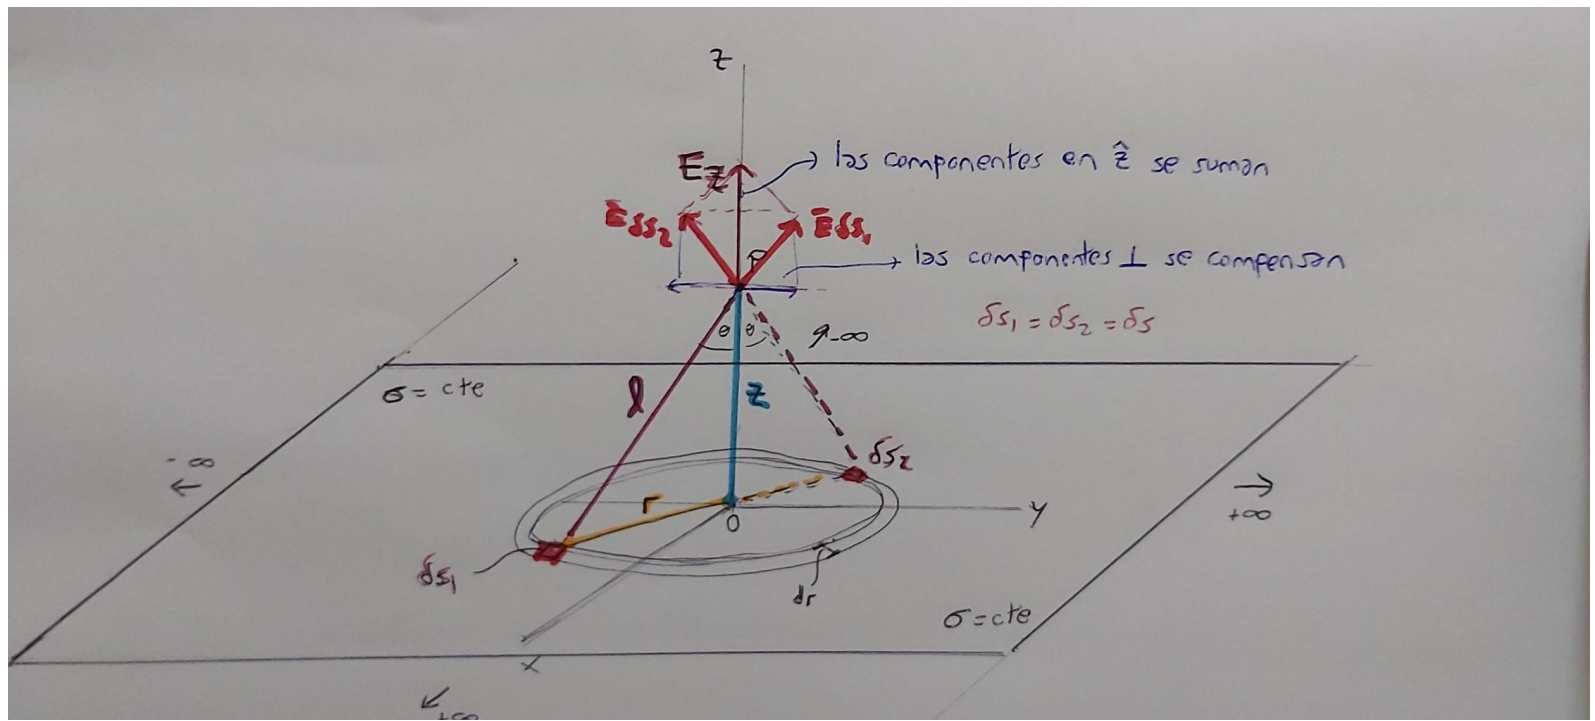 z
las componentes en ẑ se suman
Ez
Ēδs₂
Ēδs₁
las componentes ⊥ se compensan
δs₁ = δs₂ = δs
θ θ
-∞
σ = cte
l
z
δs₂
- ∞
←
r
→
+∞
0
y
δs₁
dr
σ = cte
x
+∞